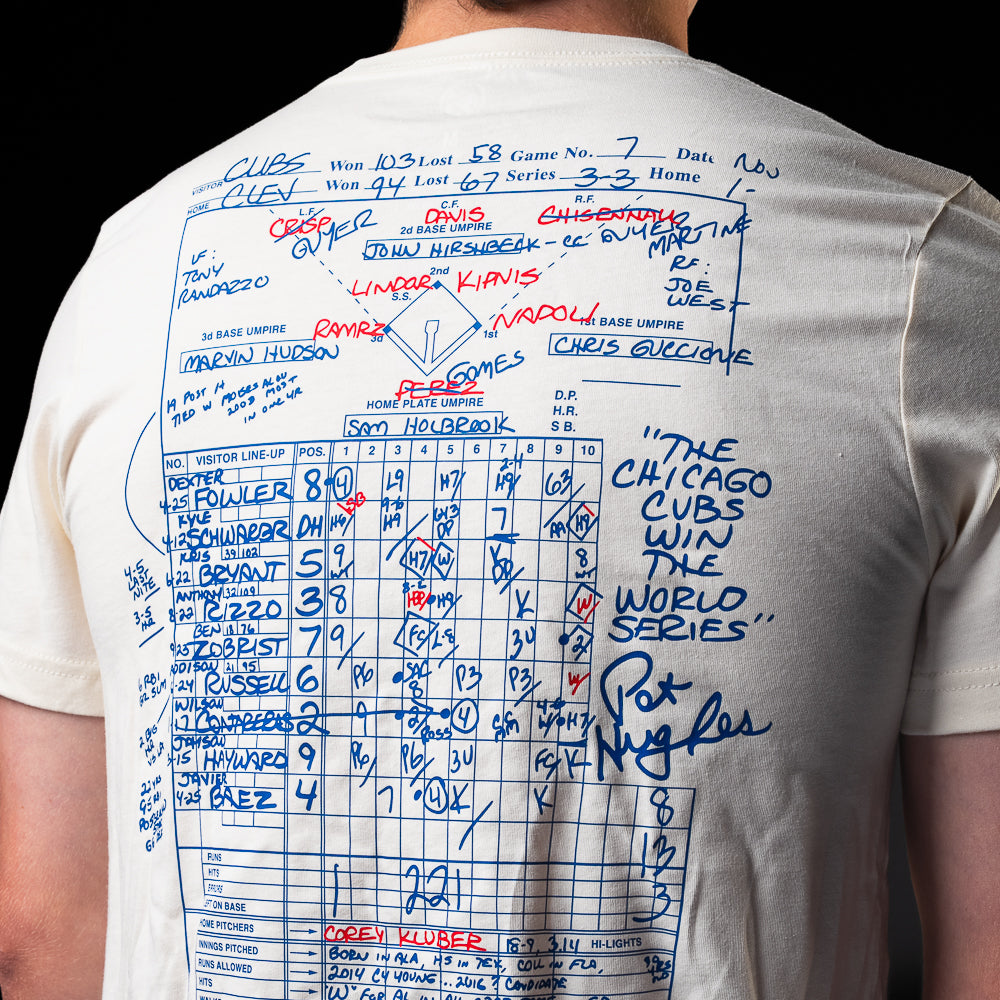 VISITOR CUBS Won 103 Lost 58 Game No. 7 Date Nov
HOME CLEV Won 94 Lost 67 Series 3-3 Home 1-
L.F. C.F. R.F.
CRISP GUYER DAVIS CHISENHALL
2d BASE UMPIRE GUYER
JOHN HIRSHBECK - CC MARTINE
LF: TONY RANDAZZO
RF: JOE WEST
2nd
LINDOR KIPNIS
S.S.
RAMRZ NAPOLI
3d 1st
3d BASE UMPIRE 1st BASE UMPIRE
MARVIN HUDSON CHRIS GUCCIONE
GOMES
PEREZ
19 POST H
TIED W MOISES ALOU
2003 MOST
IN ONE YR
HOME PLATE UMPIRE
SAM HOLBROOK
D.P.
H.R.
S B.
NO. VISITOR LINE-UP POS. 1 2 3 4 5 6 7 8 9 10
DEXTER
4-25 FOWLER 8 4 L9 H7 H9 63
KYLE SB
4-12 SCHWARBR DH H6 H9 643 DP 7 H9
KRIS 39 102
6-22 BRYANT 5 9 H7 W 8
ANTHONY 32 109
8-22 RIZZO 3 8 HBP H9 K W
BEN 18 76
9-25 ZOBRIST 7 9 FC L8 3U 2
ADDISON 21 95
RUSSELL 6 P6 SAC 8 P3 P3 W
WILSON
CONTRERAS 2 9 2 ROSS 4 H7
JAYSON
HAYWARD 9 P6 P6 3U FC K
JAVIER
4-25 BAEZ 4 7 4 K K 8
13
3
4-5
LAST
NITE
3-5
HR
6 RBI
GR SLM
"THE
CHICAGO
CUBS
WIN
THE
WORLD
SERIES"
Pat
Hughes
RUNS
HITS
ERRORS
LEFT ON BASE
1 2 2 1
HOME PITCHERS COREY KLUBER 18-9, 3.14 HI-LIGHTS
INNINGS PITCHED BORN IN ALA, HS IN TEX, COLL IN FLA,
RUNS ALLOWED 2014 CY YOUNG .. 2016 ? CANDIDATE
HITS "W" FOR AL IN ALL